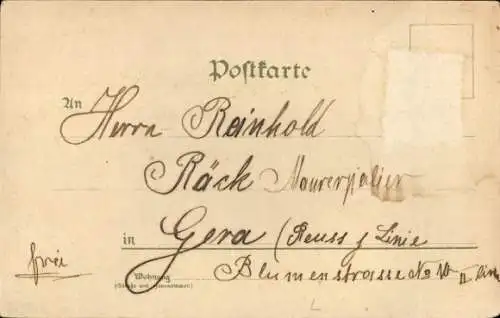 Postkarte
An Herrn Reinhold
Räck Maurerpolier
in Gera (Reuss j Linie
frei
Wohnung
(Straße und Hausnummer)
Blumenstrasse No 10 II